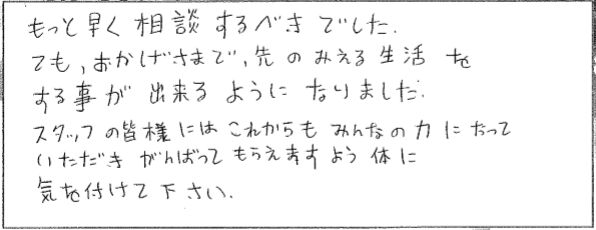 もっと早く相談するべきでした.
でも,おかげさまで,先のみえる生活を
する事が出来るようになりました.
スタッフの皆様にはこれからもみんなの力にたって
いただきがんばってもらえますよう体に
気を付けて下さい.